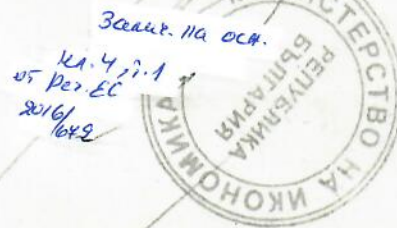 Залич. на осн.
чл. 4, т. 1
от Рег. ЕС
2016/
679
МИНИСТЕРСТВО НА ИКОНОМИКА
РЕПУБЛИКА
БЪЛГАРИЯ